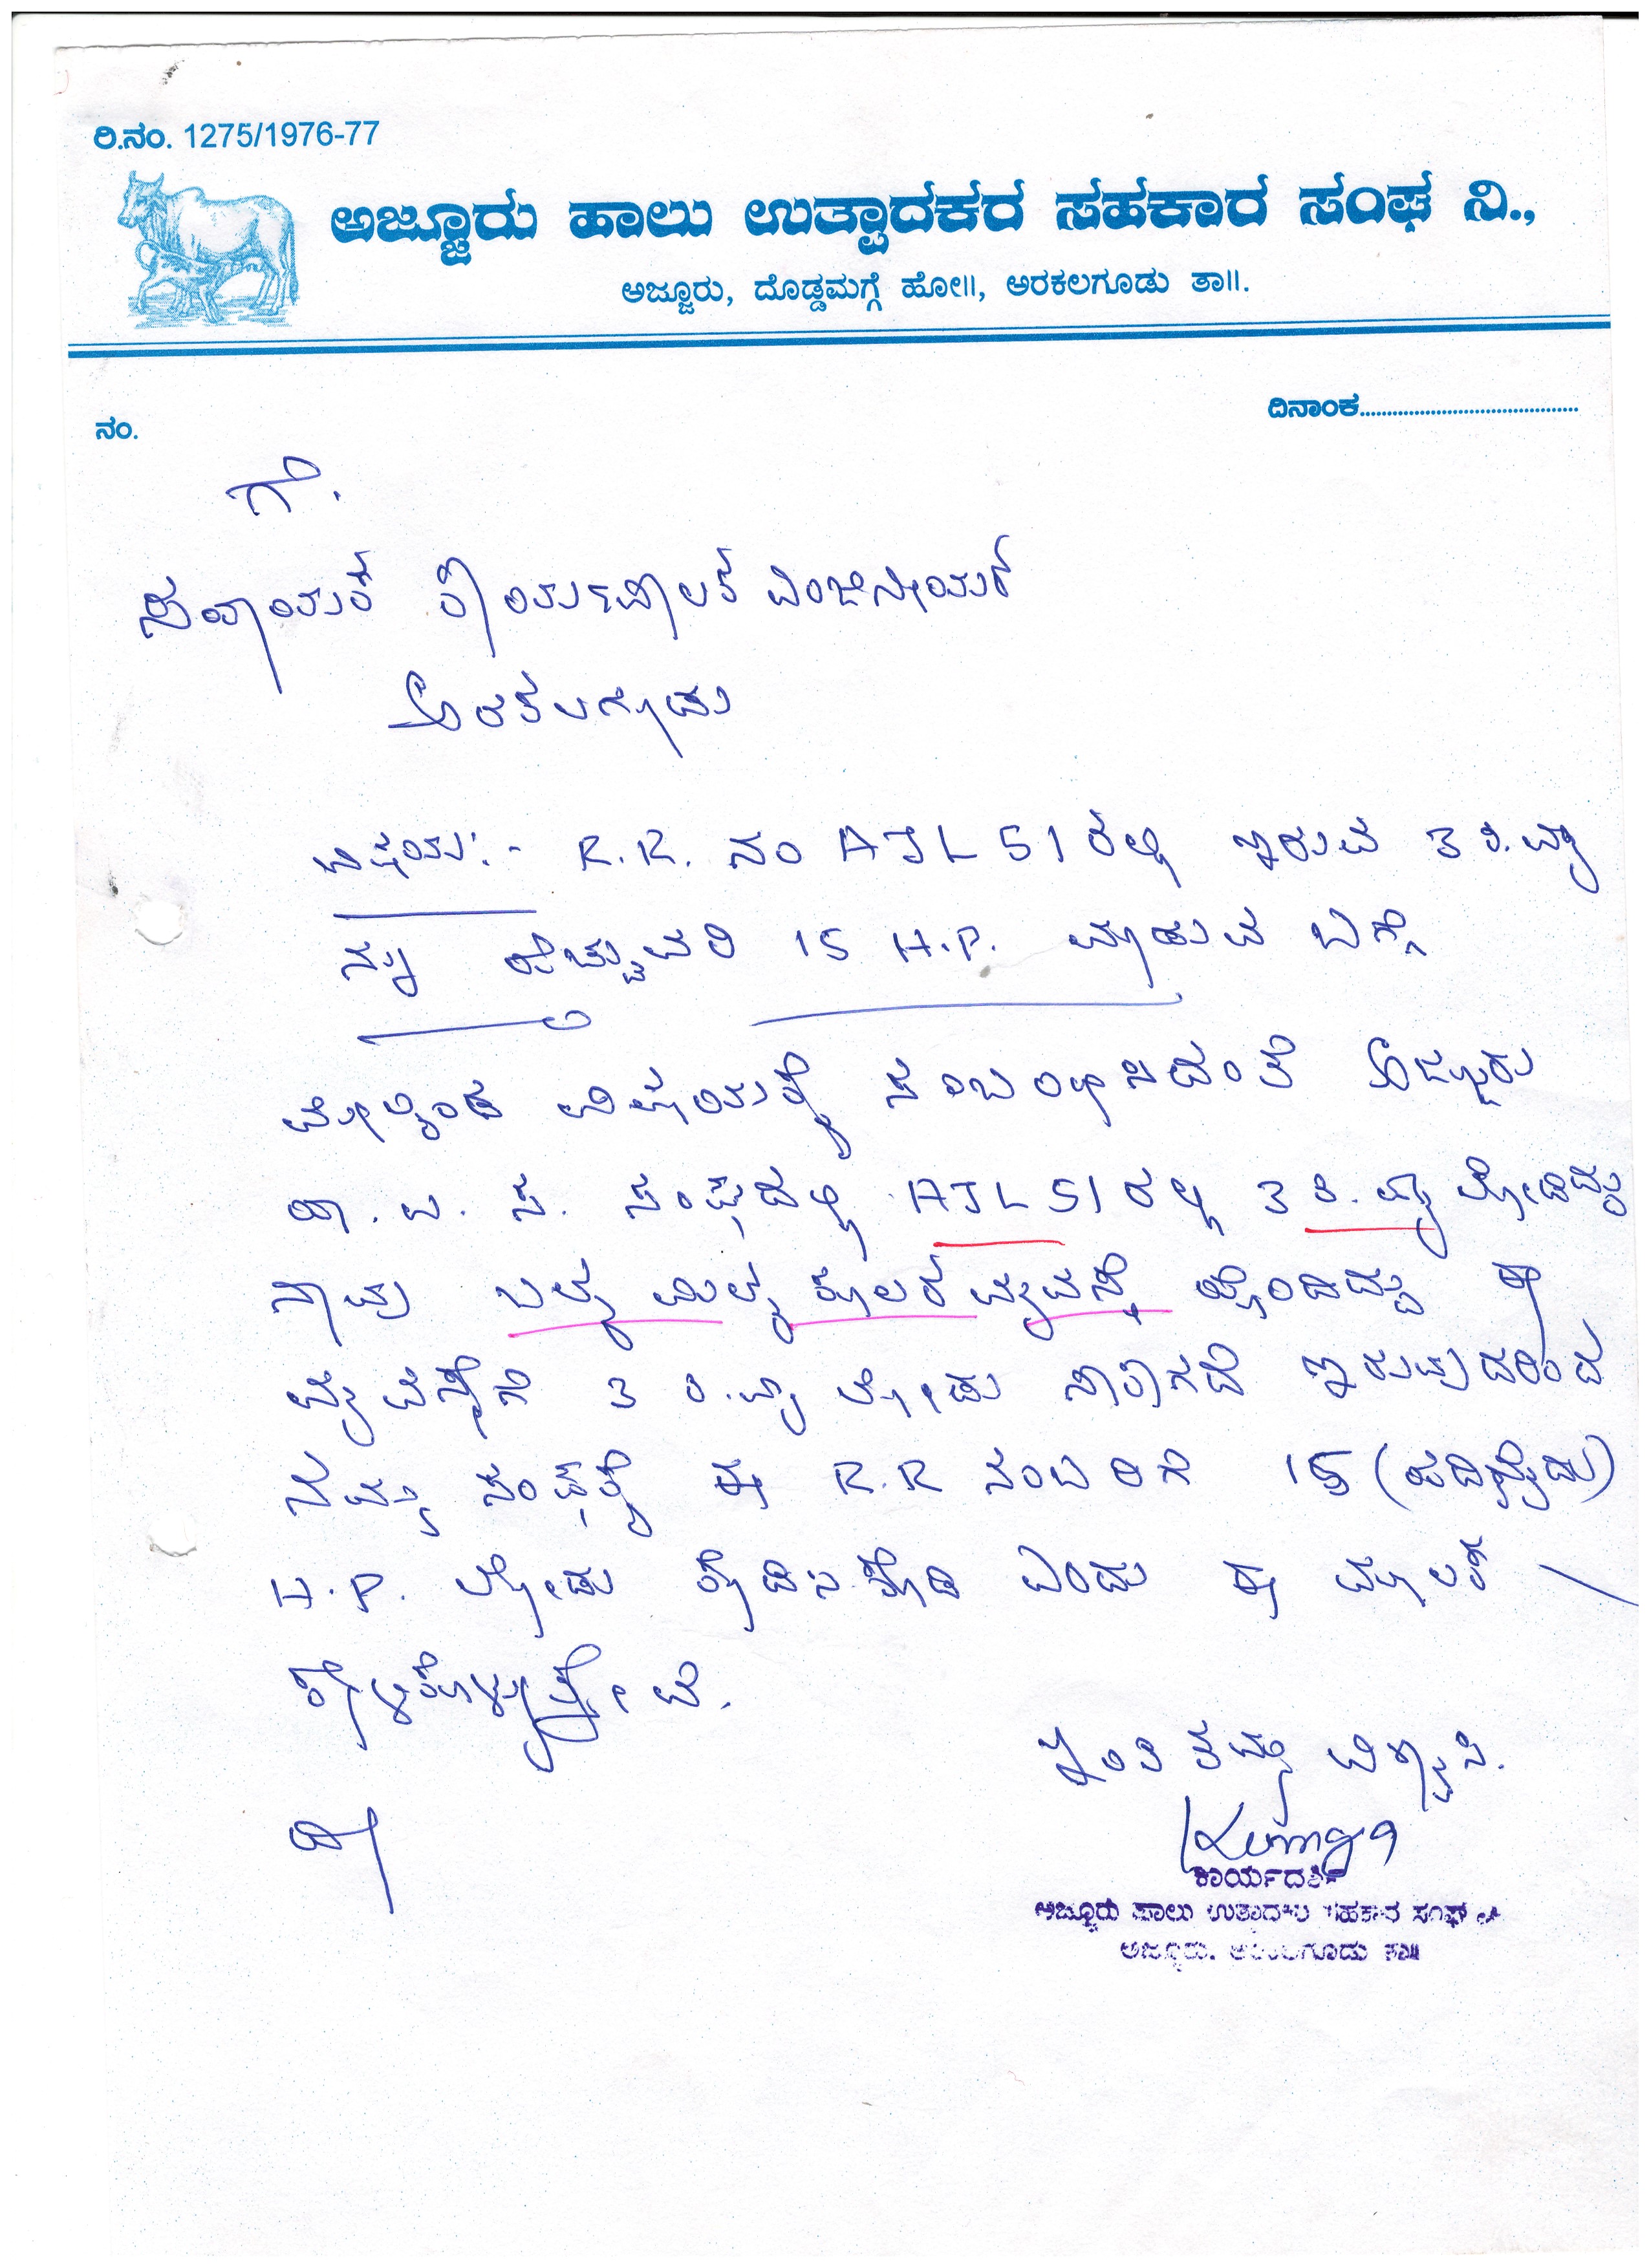 ರಿ.ನಂ. 1275/1976-77
ಅಜ್ಜೂರು ಹಾಲು ಉತ್ಪಾದಕರ ಸಹಕಾರ ಸಂಘ ನಿ.,
ಅಜ್ಜೂರು, ದೊಡ್ಡಮಗ್ಗೆ ಹೋ||, ಅರಕಲಗೂಡು ತಾ||.
ದಿನಾಂಕ
ನಂ.
ಗೆ.
ಸಹಾಯಕ ಕಾರ್ಯಪಾಲಕ ಎಂಜಿನೀಯರ್
ಅರಕಲಗೂಡು
ವಿಷಯ:- R.R. ನಂ AJL 51 ರಲ್ಲಿ ಇರುವ 3 ಕಿ.ವ್ಯಾ
ನ್ನು ಹೆಚ್ಚುವರಿ 15 H.P. ಮಾಡುವ ಬಗ್ಗೆ
ಮೇಲ್ಕಂಡ ವಿಷಯಕ್ಕೆ ಸಂಬಂಧಿಸಿದಂತೆ ಅಜ್ಜೂರು
ಹಾ. ಉ. ಸ. ಸಂಘದಲ್ಲಿ AJL 51 ರಲ್ಲಿ 3 ಕಿ.ವ್ಯಾ ಲೋಡಿದ್ದು
ನಾವು ಬಲ್ಕ್ ಮಿಲ್ಕ್ ಕೂಲರ್ ವ್ಯವಸ್ಥೆ ಹೊಂದಿದ್ದು ಈ
ವ್ಯವಸ್ಥೆಗೆ 3 ಕಿ.ವ್ಯಾ ಲೋಡು ಸಾಕಾಗದೆ ಇರುವುದರಿಂದ
ನಮ್ಮ ಸಂಘಕ್ಕೆ ಈ R.R ನಂಬರಿಗೆ 15 (ಹದಿನೈದು)
H.P. ಲೋಡು ಎಂದು ಈ ಮೂಲಕ
ಕೇಳಿಕೊಳ್ಳುತ್ತೇವೆ.
ಇಂತಿ ತಮ್ಮ ವಿಶ್ವಾಸಿ.
ಕಾರ್ಯದರ್ಶಿ
ಅಜ್ಜೂರು ಹಾಲು ಉತ್ಪಾದಕರ ಸಹಕಾರ ಸಂಘ ನಿ
ಅಜ್ಜೂರು. ಅರಕಲಗೂಡು ತಾ||